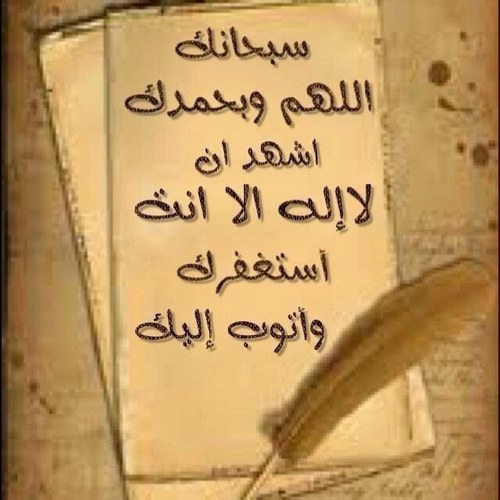 سبحانك
اللهم وبحمدك
اشهد ان
لاإله الا انت
أستغفرك
وأتوب إليك